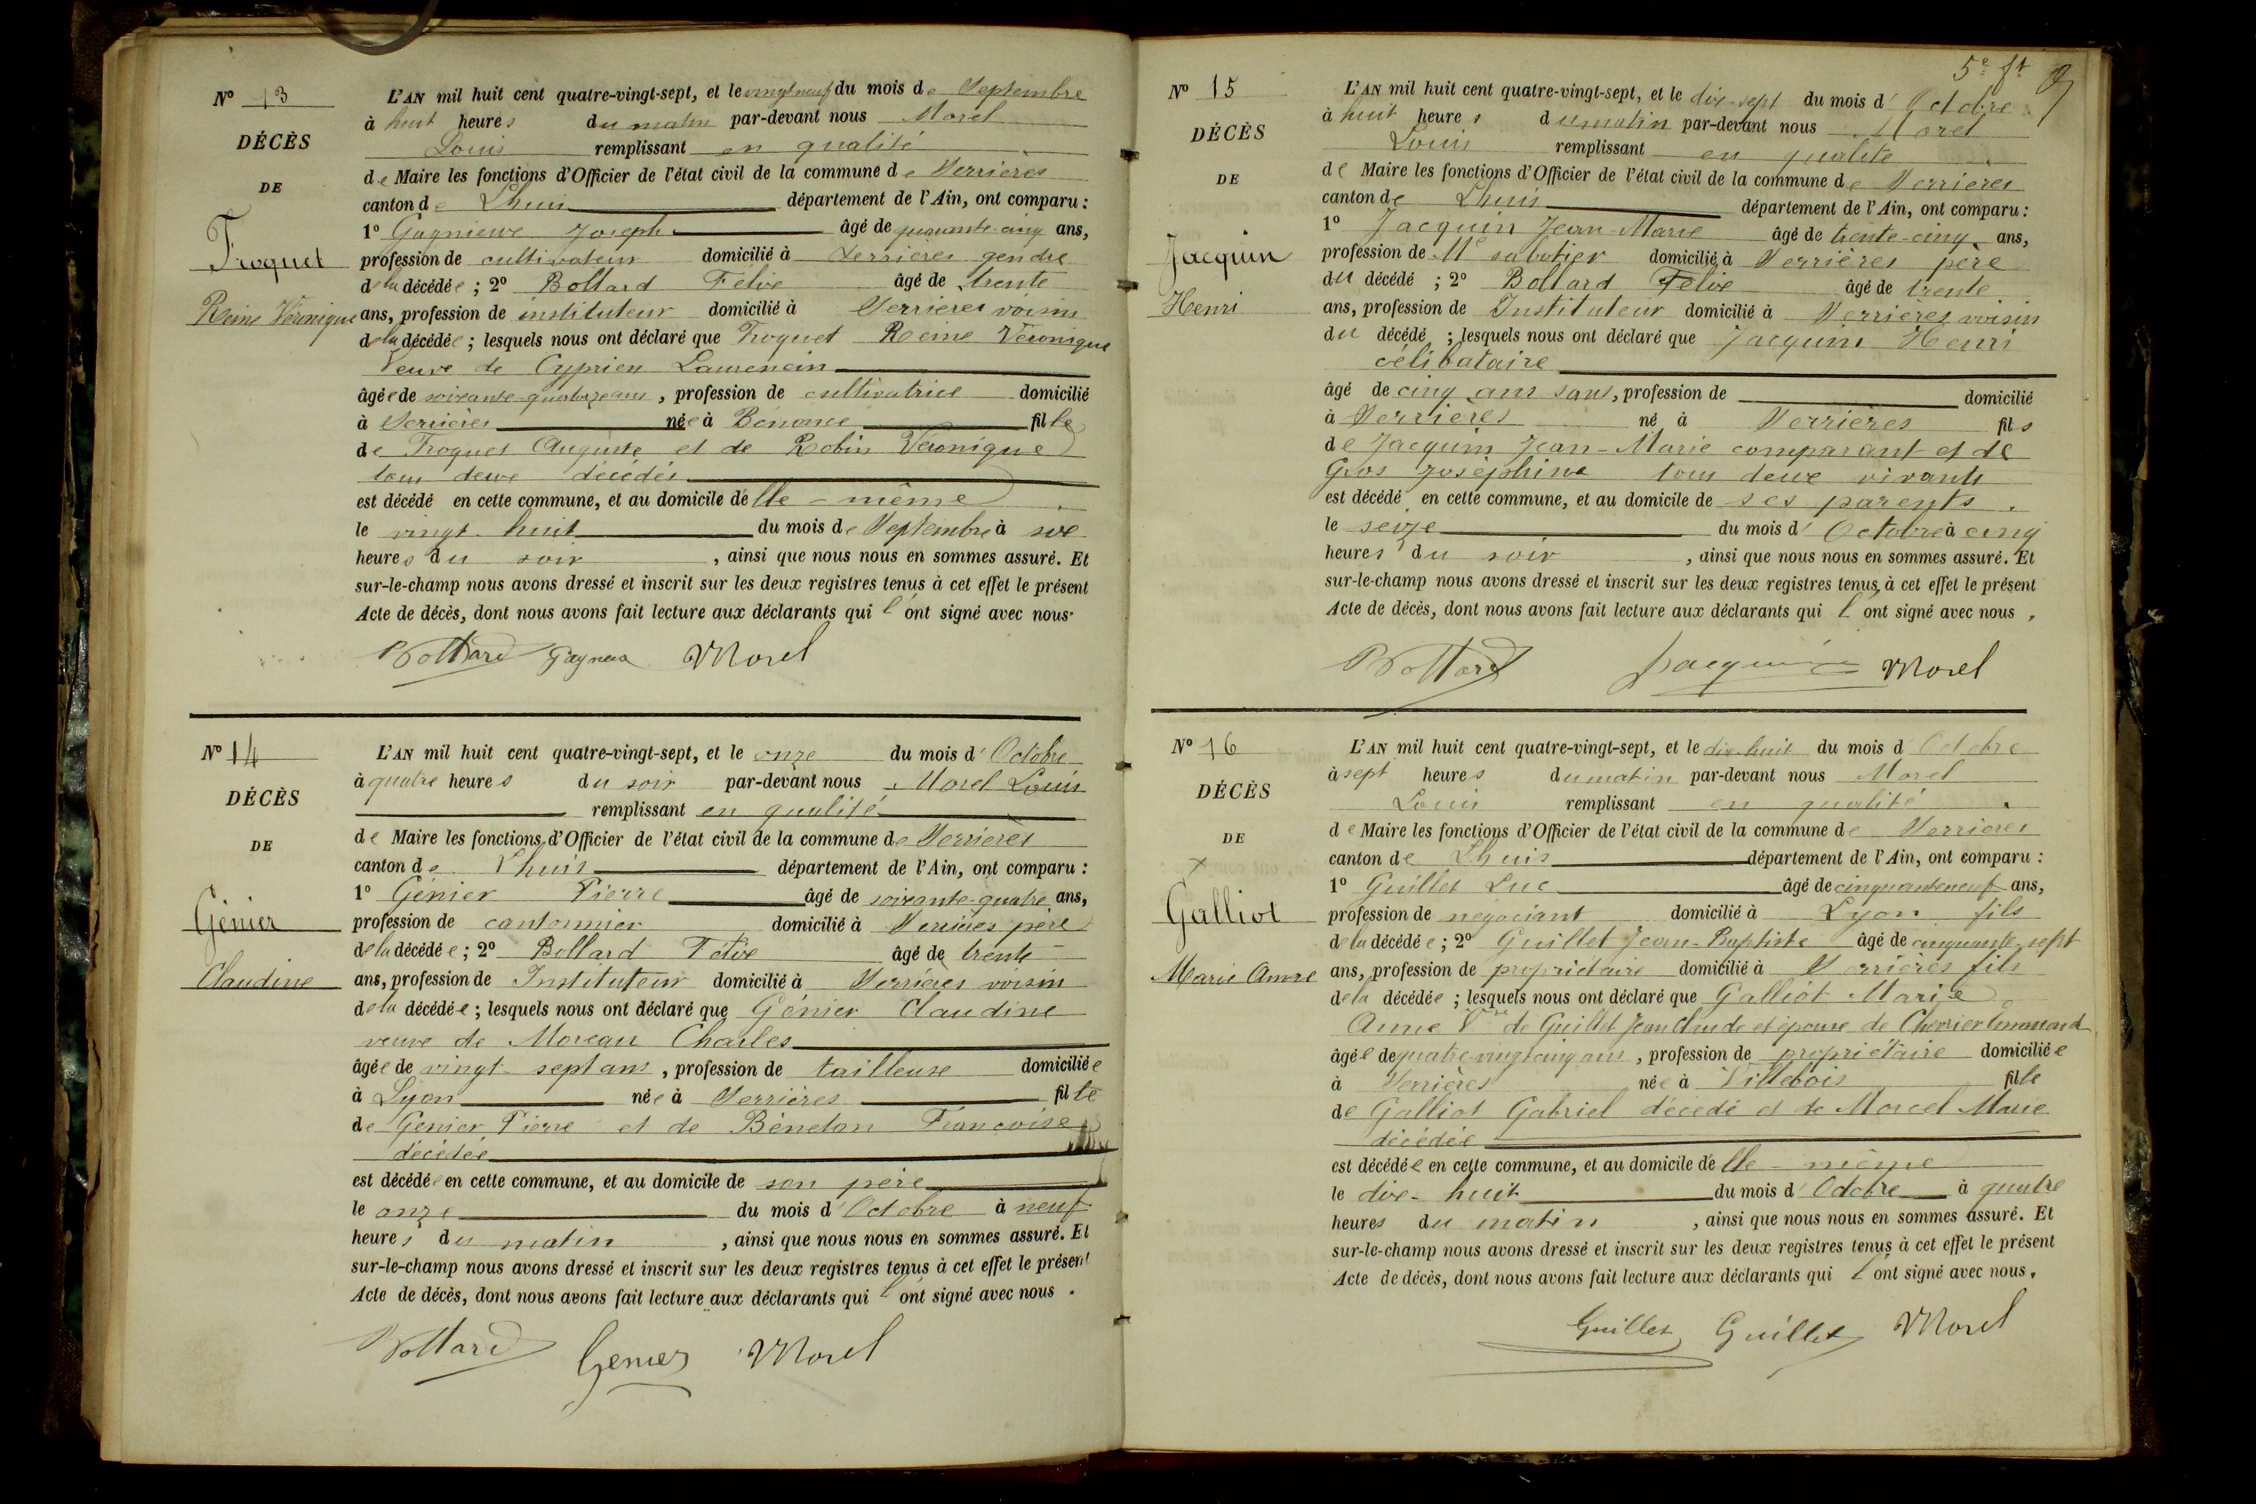 Nº 13
DÉCÈS
DE
Troquet
Reine Véronique
L'AN mil huit cent quatre-vingt-sept, et le vingt neuf du mois de Septembre
à huit heures du matin par-devant nous Morel
Louis remplissant en qualité
de Maire les fonctions d'Officier de l'état civil de la commune de Serrières
canton de Lhuis département de l'Ain, ont comparu :
1º Gagnieux Joseph âgé de quarante-cinq ans,
profession de cultivateur domicilié à Serrières gendre
de la décédée ; 2º Bottard Félix âgé de trente
ans, profession de instituteur domicilié à Serrières voisin
de la décédée ; lesquels nous ont déclaré que Troquet Reine Véronique
Veuve de Cyprien Laurencin
âgée de soixante-quatorze ans, profession de cultivatrice domicilié
à Serrières née à Bénonce fille
de Troquet Auguste et de Robin Véronique
tous deux décédés
est décédé en cette commune, et au domicile d'elle-même
le vingt-huit du mois de Septembre à six
heures du soir, ainsi que nous nous en sommes assuré. Et
sur-le-champ nous avons dressé et inscrit sur les deux registres tenus à cet effet le présent
Acte de décès, dont nous avons fait lecture aux déclarants qui l'ont signé avec nous.
Bottard Gagneux Morel
Nº 14
DÉCÈS
DE
Génier
Claudine
L'AN mil huit cent quatre-vingt-sept, et le onze du mois d'Octobre
à quatre heures du soir par-devant nous Morel Louis
remplissant en qualité
de Maire les fonctions d'Officier de l'état civil de la commune de Serrières
canton de Lhuis département de l'Ain, ont comparu :
1º Génier Pierre âgé de soixante-quatre ans,
profession de cantonnier domicilié à Serrières père
de la décédée ; 2º Bottard Félix âgé de trente
ans, profession de Instituteur domicilié à Serrières voisin
de la décédée ; lesquels nous ont déclaré que Génier Claudine
veuve de Moreau Charles
âgée de vingt-sept ans, profession de tailleuse domiciliée
à Lyon née à Serrières fille
de Génier Pierre et de Bénetan Françoise
décédée
est décédée en cette commune, et au domicile de son père
le onze du mois d'Octobre à neuf
heures du matin, ainsi que nous nous en sommes assuré. Et
sur-le-champ nous avons dressé et inscrit sur les deux registres tenus à cet effet le présent
Acte de décès, dont nous avons fait lecture aux déclarants qui l'ont signé avec nous.
Bottard Genier Morel
5e ft
Nº 15
DÉCÈS
DE
Jacquin
Henri
L'AN mil huit cent quatre-vingt-sept, et le dix-sept du mois d'Octobre
à huit heures du matin par-devant nous Morel
Louis remplissant en qualité
de Maire les fonctions d'Officier de l'état civil de la commune de Serrières
canton de Lhuis département de l'Ain, ont comparu :
1º Jacquin Jean-Marie âgé de trente-cinq ans,
profession de Md sabotier domicilié à Serrières père
du décédé ; 2º Bottard Félix âgé de trente
ans, profession de Instituteur domicilié à Serrières voisin
du décédé ; lesquels nous ont déclaré que Jacquin Henri
célibataire
âgé de cinq ans sans, profession de domicilié
à Serrières né à Serrières fils
de Jacquin Jean-Marie comparant et de
Gros Joséphine tous deux vivants
est décédé en cette commune, et au domicile de ses parents.
le seize du mois d'Octobre à cinq
heures du soir, ainsi que nous nous en sommes assuré. Et
sur-le-champ nous avons dressé et inscrit sur les deux registres tenus à cet effet le présent
Acte de décès, dont nous avons fait lecture aux déclarants qui l'ont signé avec nous.
Bottard Jacquin Morel
Nº 16
DÉCÈS
DE
Galliot
Marie Anne
L'AN mil huit cent quatre-vingt-sept, et le dix-huit du mois d'Octobre
à sept heures du matin par-devant nous Morel
Louis remplissant en qualité
de Maire les fonctions d'Officier de l'état civil de la commune de Serrières
canton de Lhuis département de l'Ain, ont comparu :
1º Guillet Luc âgé de cinquante neuf ans,
profession de négociant domicilié à Lyon fils
de la décédée ; 2º Guillet Jean-Baptiste âgé de cinquante-sept
ans, profession de propriétaire domicilié à Serrières fils
de la décédée ; lesquels nous ont déclaré que Galliot Marie
Anne Vve de Guillet Jean Claude et épouse de Cherrier
âgée de quatre-vingt cinq ans, profession de propriétaire domiciliée
à Serrières née à Villebois fille
de Galliot Gabriel décédé et de Morcel Marie
décédée
est décédée en cette commune, et au domicile d'elle-même
le dix-huit du mois d'Octobre à quatre
heures du matin, ainsi que nous nous en sommes assuré. Et
sur-le-champ nous avons dressé et inscrit sur les deux registres tenus à cet effet le présent
Acte de décès, dont nous avons fait lecture aux déclarants qui l'ont signé avec nous.
Guillet Guillet Morel